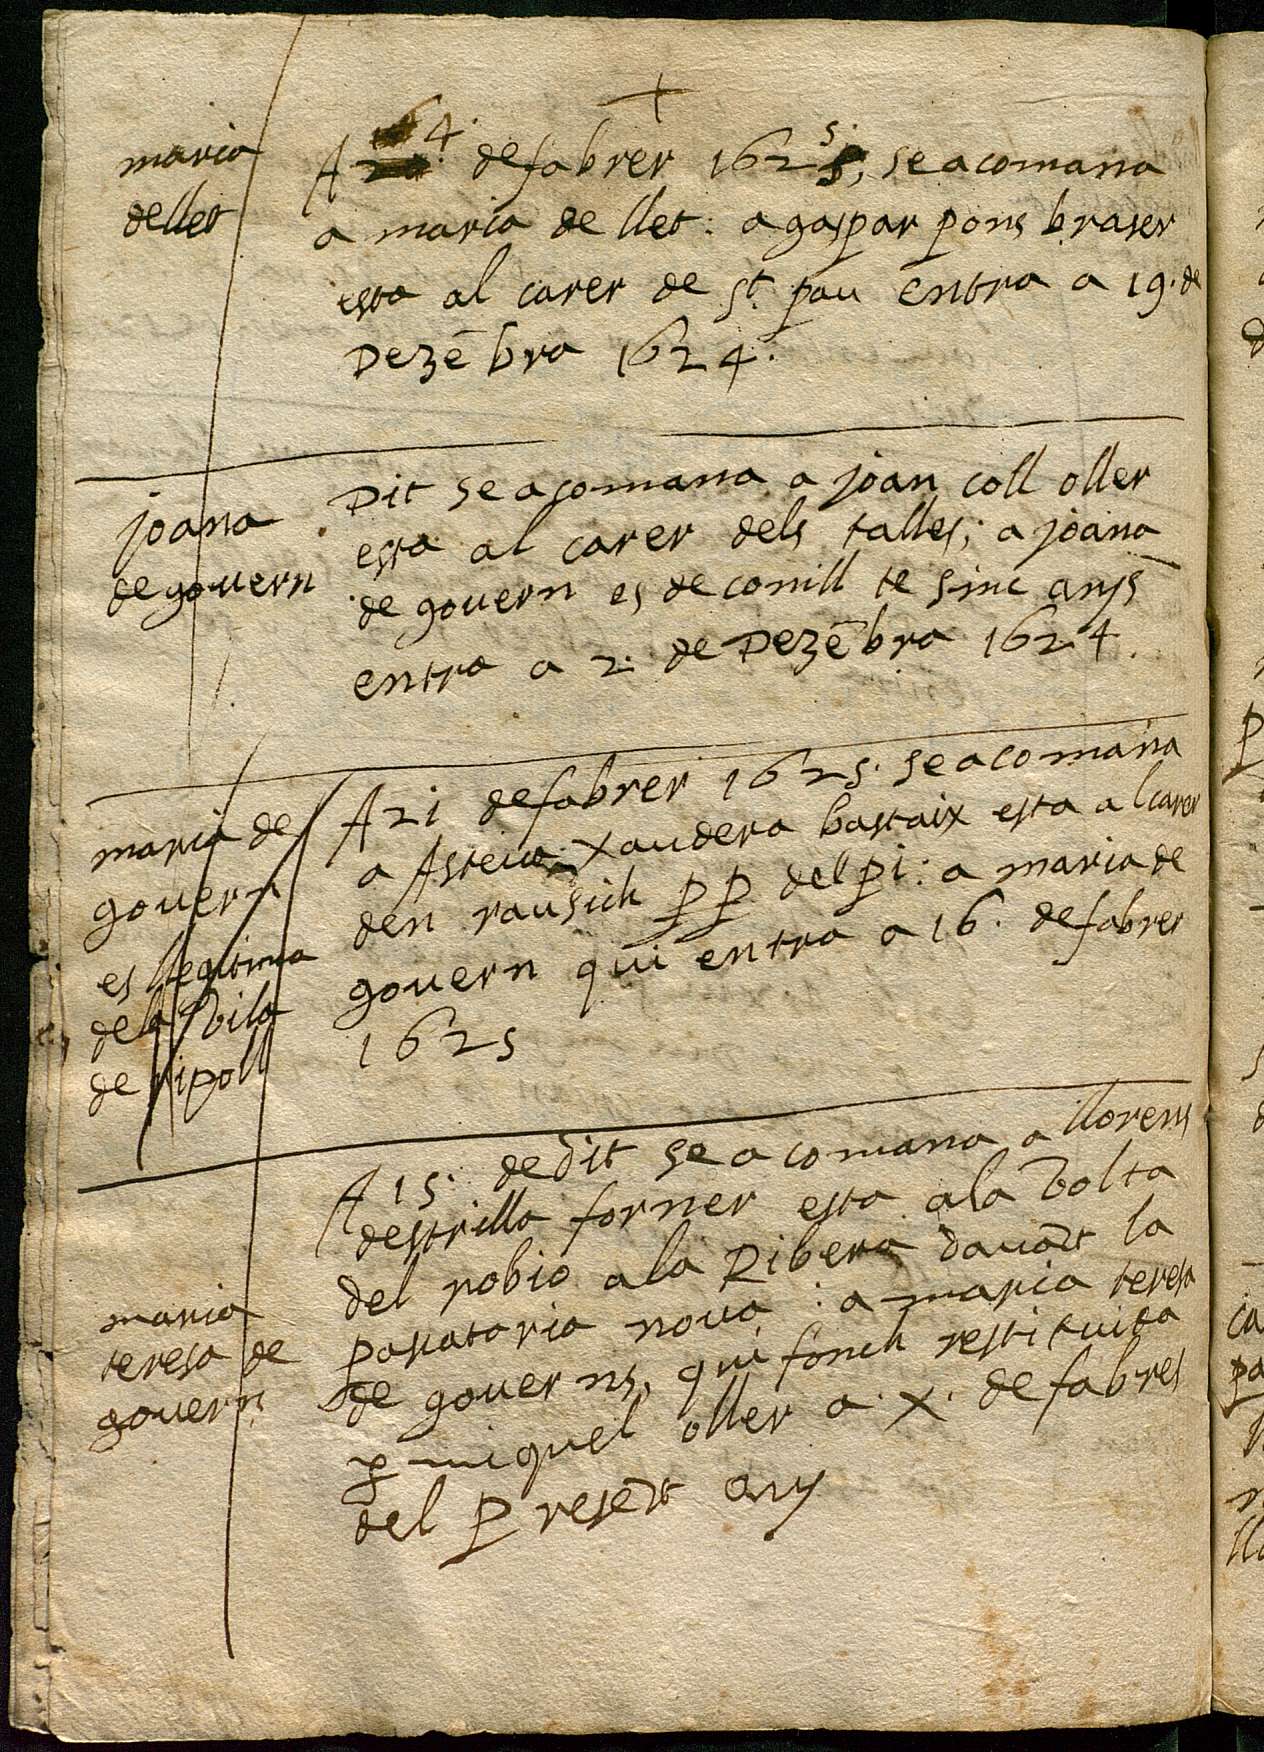 +
maria
de llet
A 4. de fabrer 1625, se acomana
a maria de llet: a gaspar pons braser
esta al carer de st. pau entra a 19. de
Dezēbra 1624.
joana
de govern
Dit se acomana a joan coll oller
esta al carer dels talles; a joana
de govern es de conill te sinc anys
entra a 2. de Dezēbra 1624.
maria de
govern
es llegitima
de la vila
de ripoll
A 21 de fabrer 1625. se acomana
a Asteva xaudera bastaix esta al carer
den rausich pp del pi: a maria de
govern qui entra a 16. de fabrer
1625
maria
teresa de
govern
A 15. de dit se acomana a llorens
destrilla forner esta a la volta
del robio a la Ribera davāt la
pasataria nova: a maria teresa
de governs, qui fonch restituita
p miquel oller a x. de fabrer
del presēt any